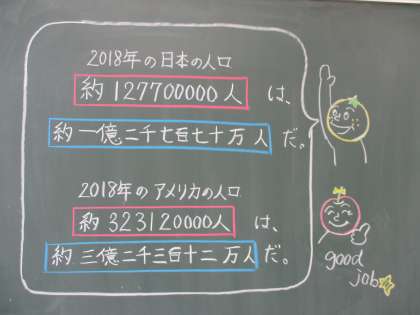 2018年の日本の人口
約127700000人は、
約一億二千七百七十万人だ。
2018年のアメリカの人口
約323120000人は、
約三億二千三百十二万人だ。
good
job